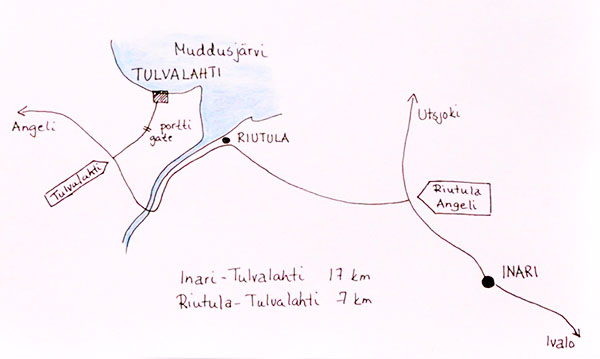 Muddusjärvi
TULVALAHTI
Angeli
portti
gate
RIUTULA
Utsjoki
Tulvalahti
Riutula
Angeli
INARI
Inari-Tulvalahti 17 km
Riutula-Tulvalahti 7 km
Ivalo